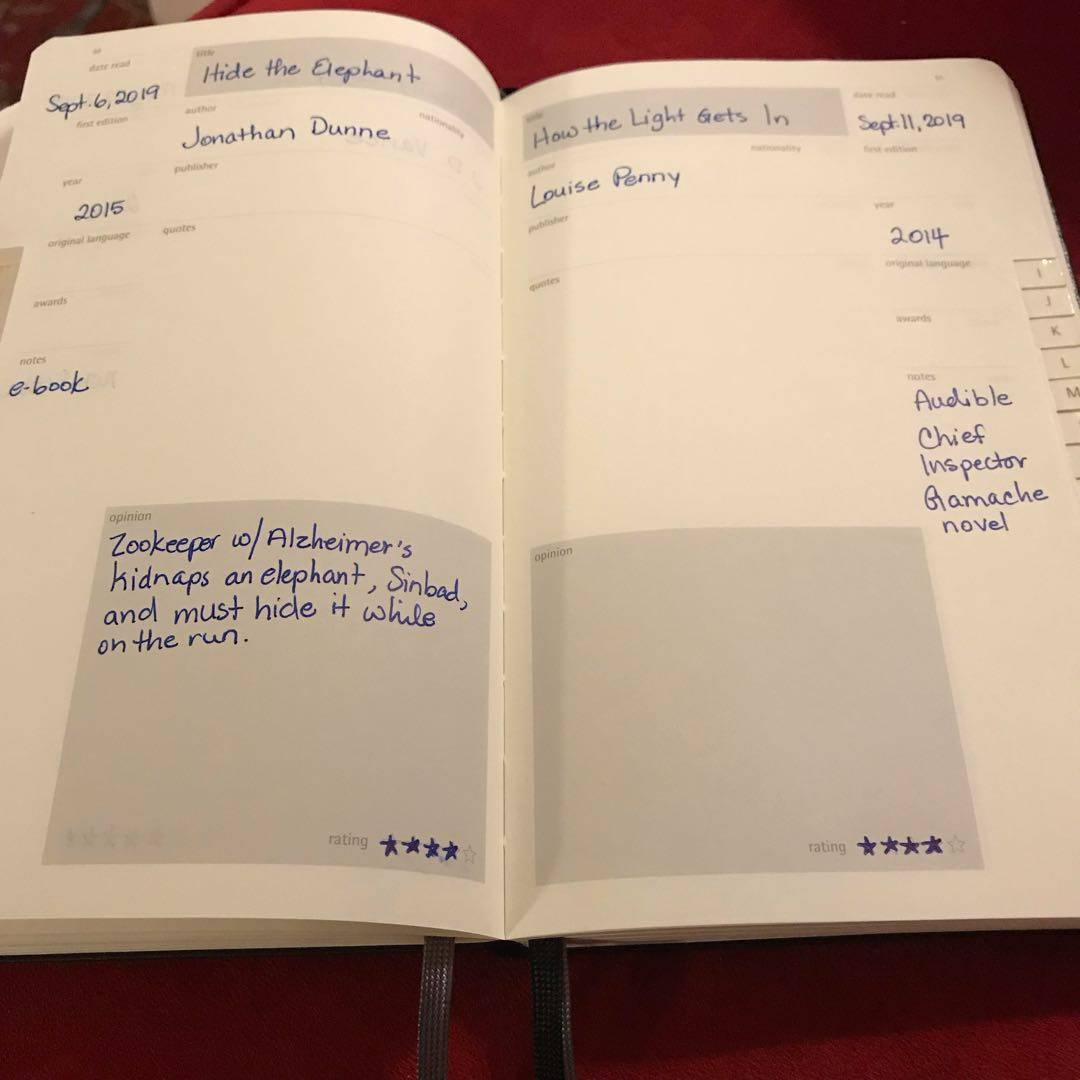 date read
title
Hide the Elephant
Sept. 6, 2019
first edition
author
nationality
Jonathan Dunne
year
publisher
2015
original language
quotes
awards
notes
e-book
opinion
Zookeeper w/ Alzheimer's
kidnaps an elephant, Sinbad,
and must hide it while
on the run.
rating
title
How the Light Gets In
date read
Sept. 11, 2019
author
nationality
first edition
Louise Penny
publisher
year
2014
quotes
original language
awards
notes
Audible
Chief
Inspector
Gamache
novel
opinion
rating
I
J
K
L
M